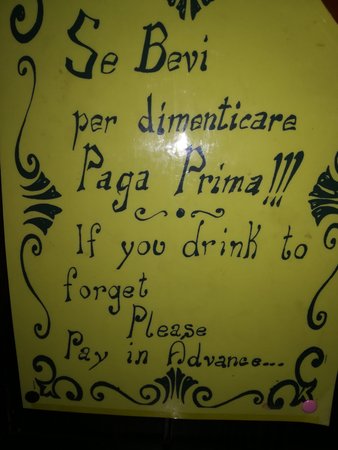 Se Bevi
per dimenticare
Paga Prima!!!
If you drink to
forget
Please
Pay in Advance...